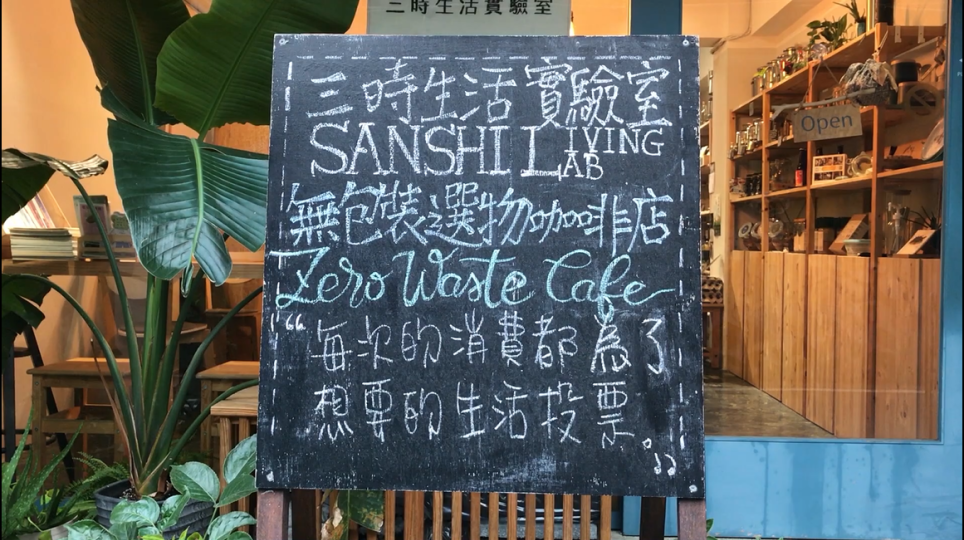 三時生活實驗室
三時生活實驗室
SANSHI LIVING LAB
無包裝選物咖啡店
Zero Waste Cafe
“每次的消費都為了
想要的生活投票。”
Open